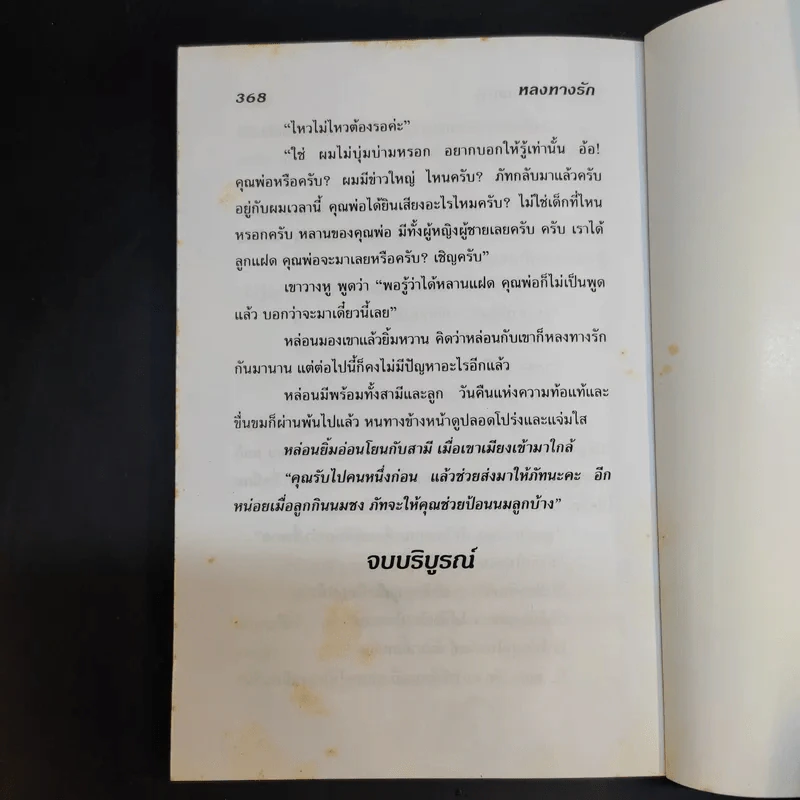 368 หลงทางรัก
“ไหวไม่ไหวต้องรอค่ะ”
“ใช่ ผมไม่บุ่มบ่ามหรอก อยากบอกให้รู้เท่านั้น อ้อ!
คุณพ่อหรือครับ? ผมมีข่าวใหญ่ ไหนครับ? ภัทกลับมาแล้วครับ
อยู่กับผมเวลานี้ คุณพ่อได้ยินเสียงอะไรไหมครับ? ไม่ใช่เด็กที่ไหน
หรอกครับ หลานของคุณพ่อ มีทั้งผู้หญิงผู้ชายเลยครับ ครับ เราได้
ลูกแฝด คุณพ่อจะมาเลยหรือครับ? เชิญครับ”
เขาวางหู พูดว่า “พอรู้ว่าได้หลานแฝด คุณพ่อก็ไม่เป็นพูด
แล้ว บอกว่าจะมาเดี๋ยวนี้เลย”
หล่อนมองเขาแล้วยิ้มหวาน คิดว่าหล่อนกับเขาก็หลงทางรัก
กันมานาน แต่ต่อไปนี้ก็คงไม่มีปัญหาอะไรอีกแล้ว
หล่อนมีพร้อมทั้งสามีและลูก วันคืนแห่งความท้อแท้และ
ขื่นขมก็ผ่านพ้นไปแล้ว หนทางข้างหน้าดูปลอดโปร่งและแจ่มใส
หล่อนยิ้มอ่อนโยนกับสามี เมื่อเขาเมียงเข้ามาใกล้
“คุณรับไปคนหนึ่งก่อน แล้วช่วยส่งมาให้ภัทนะคะ อีก
หน่อยเมื่อลูกกินนมชง ภัทจะให้คุณช่วยป้อนนมลูกบ้าง”
จบบริบูรณ์